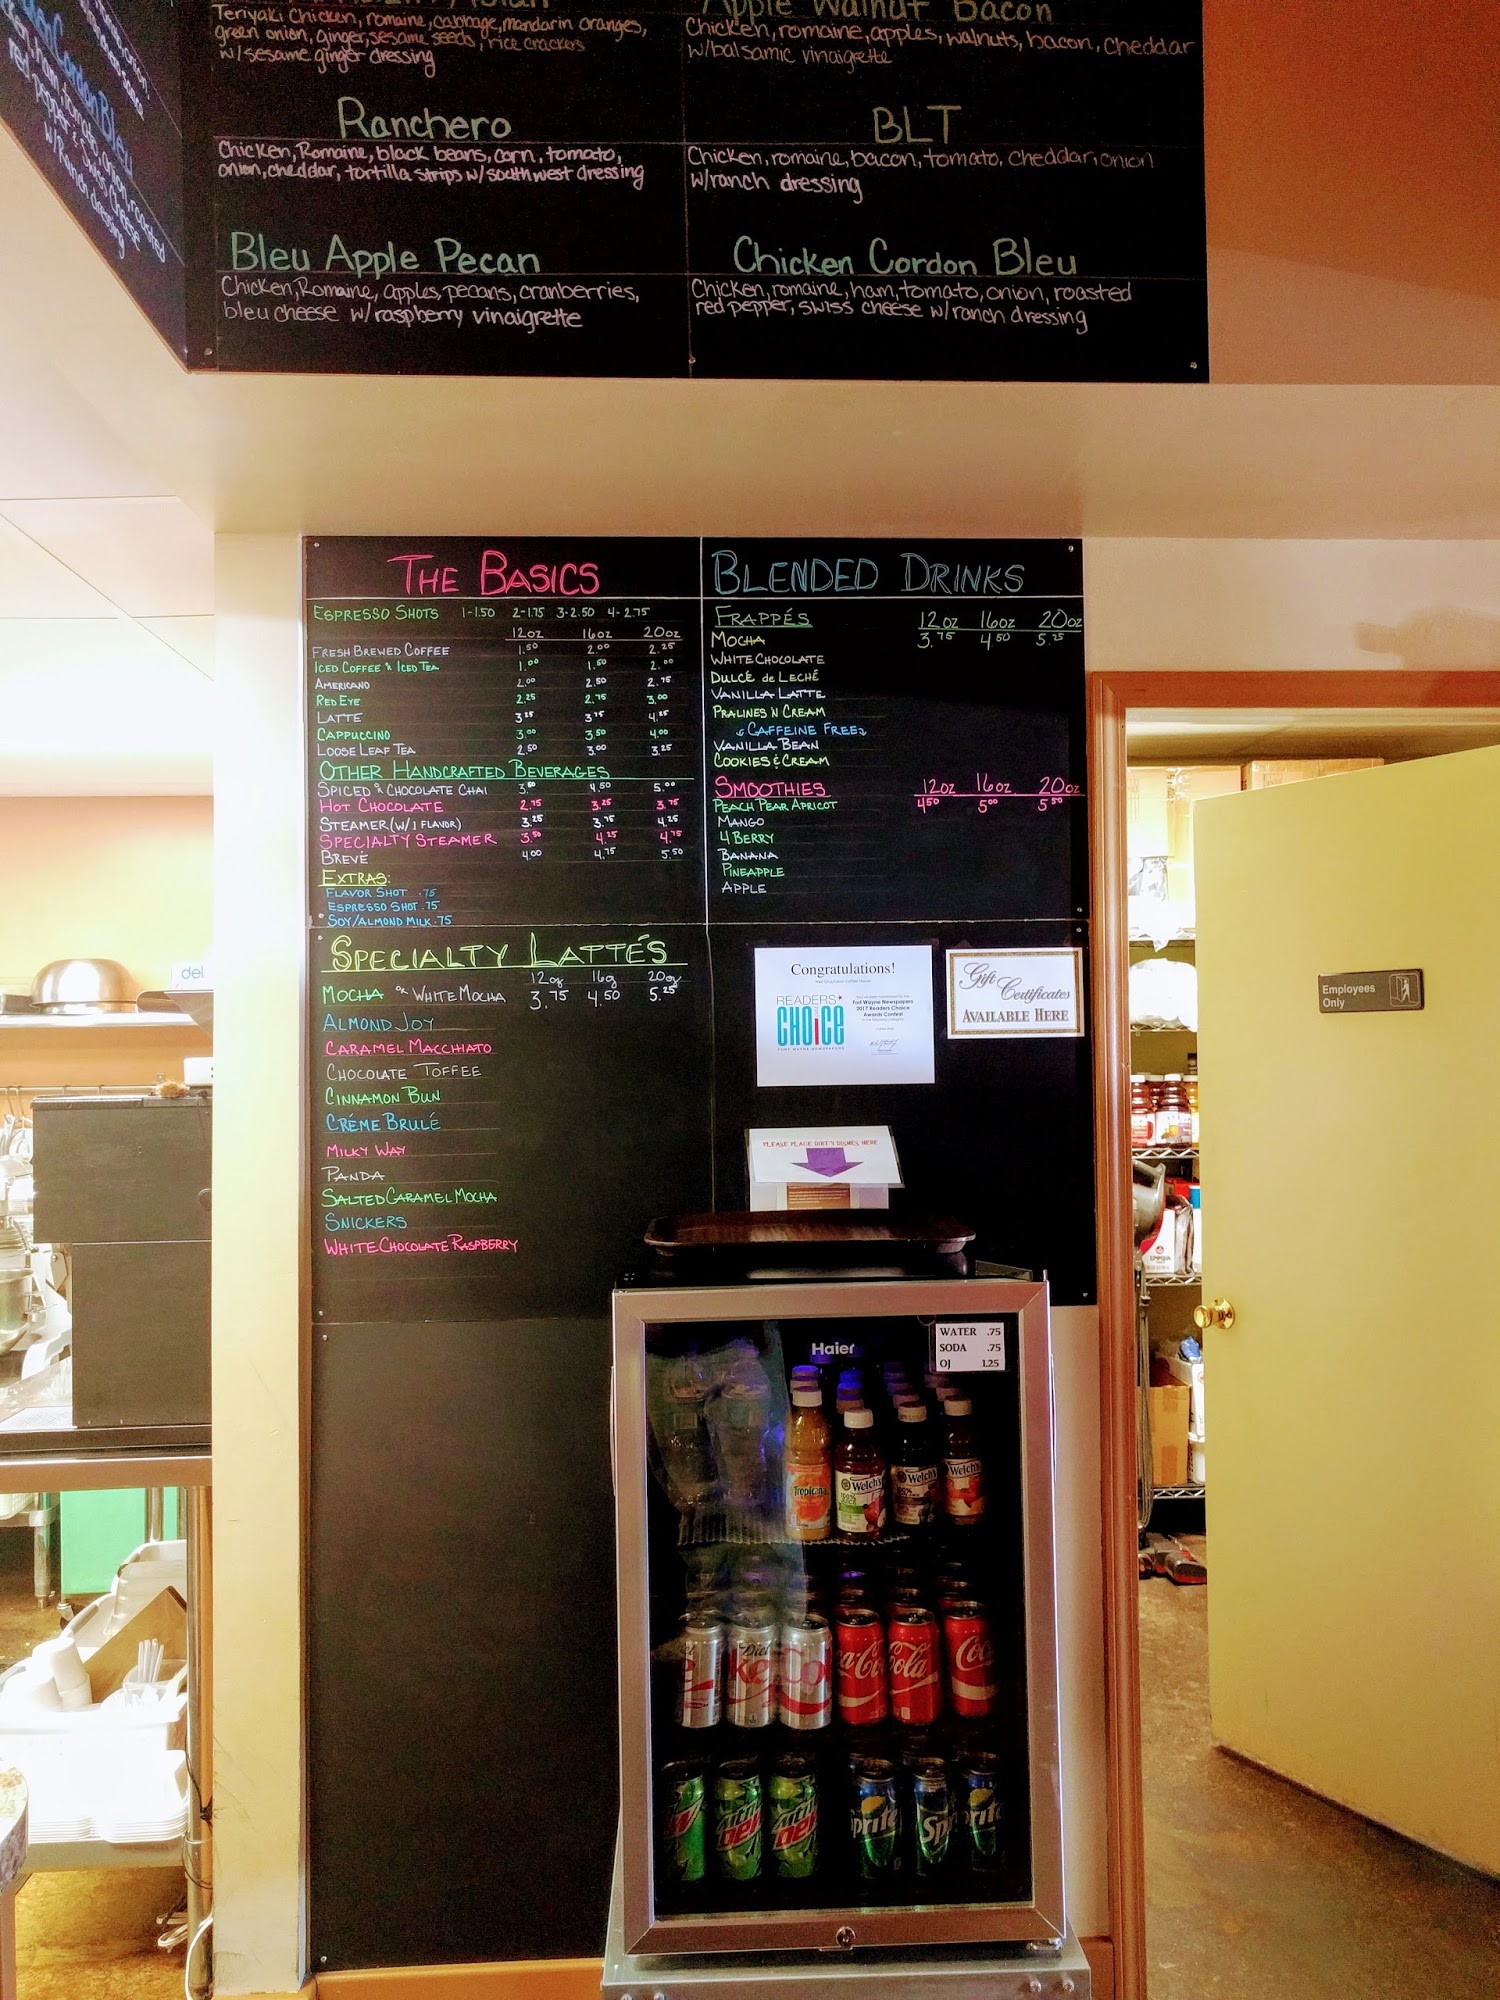 Teriyaki Chicken, romaine, cabbage, mandarin oranges,
green onion, ginger, sesame seeds, rice crackers
w/sesame ginger dressing
Apple Walnut Bacon
Chicken, romaine, apples, walnuts, bacon, cheddar
w/balsamic vinaigrette
Ranchero
Chicken, Romaine, black beans, corn, tomato,
onion, cheddar, tortilla strips w/southwest dressing
BLT
Chicken, romaine, bacon, tomato, cheddar, onion
w/ranch dressing
Bleu Apple Pecan
Chicken, Romaine, apples, pecans, cranberries,
bleu cheese w/raspberry vinaigrette
Chicken Cordon Bleu
Chicken, romaine, ham, tomato, onion, roasted
red pepper, swiss cheese w/ranch dressing
Cordon Bleu
ham, tomato, onion, roasted
red pepper, Swiss Cheese
w/Ranch dressing
THE BASICS
ESPRESSO SHOTS 1-1.50 2-1.75 3-2.50 4-2.75
12oz 16oz 20oz
FRESH BREWED COFFEE 1.50 2.00 2.25
ICED COFFEE & ICED TEA 1.00 1.50 2.00
AMERICANO 2.00 2.50 2.75
RED EYE 2.25 2.75 3.00
LATTE 3.25 3.75 4.25
CAPPUCCINO 3.00 3.50 4.00
LOOSE LEAF TEA 2.50 3.00 3.25
OTHER HANDCRAFTED BEVERAGES
SPICED & CHOCOLATE CHAI 3.80 4.50 5.00
HOT CHOCOLATE 2.75 3.25 3.75
STEAMER (W/1 FLAVOR) 3.25 3.75 4.25
SPECIALTY STEAMER 3.50 4.25 4.75
BREVÉ 4.00 4.75 5.50
EXTRAS:
FLAVOR SHOT .75
ESPRESSO SHOT .75
SOY/ALMOND MILK .75
BLENDED DRINKS
FRAPPÉS 12oz 16oz 20oz
MOCHA 3.75 4.50 5.25
WHITE CHOCOLATE
DULCÉ de LECHÉ
VANILLA LATTE
PRALINES 'N CREAM
CAFFEINE FREE
VANILLA BEAN
COOKIES & CREAM
SMOOTHIES 12oz 16oz 20oz
PEACH PEAR APRICOT 4.50 5.00 5.50
MANGO
4 BERRY
BANANA
PINEAPPLE
APPLE
SPECIALTY LATTÉS
12oz 16oz 20oz
MOCHA OR WHITE MOCHA 3.75 4.50 5.25
ALMOND JOY
CARAMEL MACCHIATO
CHOCOLATE TOFFEE
CINNAMON BUN
CRÉME BRULÉ
MILKY WAY
PANDA
SALTED CARAMEL MOCHA
SNICKERS
WHITE CHOCOLATE RASPBERRY
Congratulations!
READERS
CHOICE
FORT WAYNE NEWSPAPERS
Fort Wayne Newspapers
2017 Readers Choice
Awards Contest
Gift
Certificates
AVAILABLE HERE
PLEASE PLACE DIRTY DISHES HERE
Employees
Only
del
Haier
WATER .75
SODA .75
OJ 1.25
Tropicana
Welch's
Welch's
Welch's
Diet
ke
Co
ca-Co
Cola
Coc
Sprite
Spr
Sprite